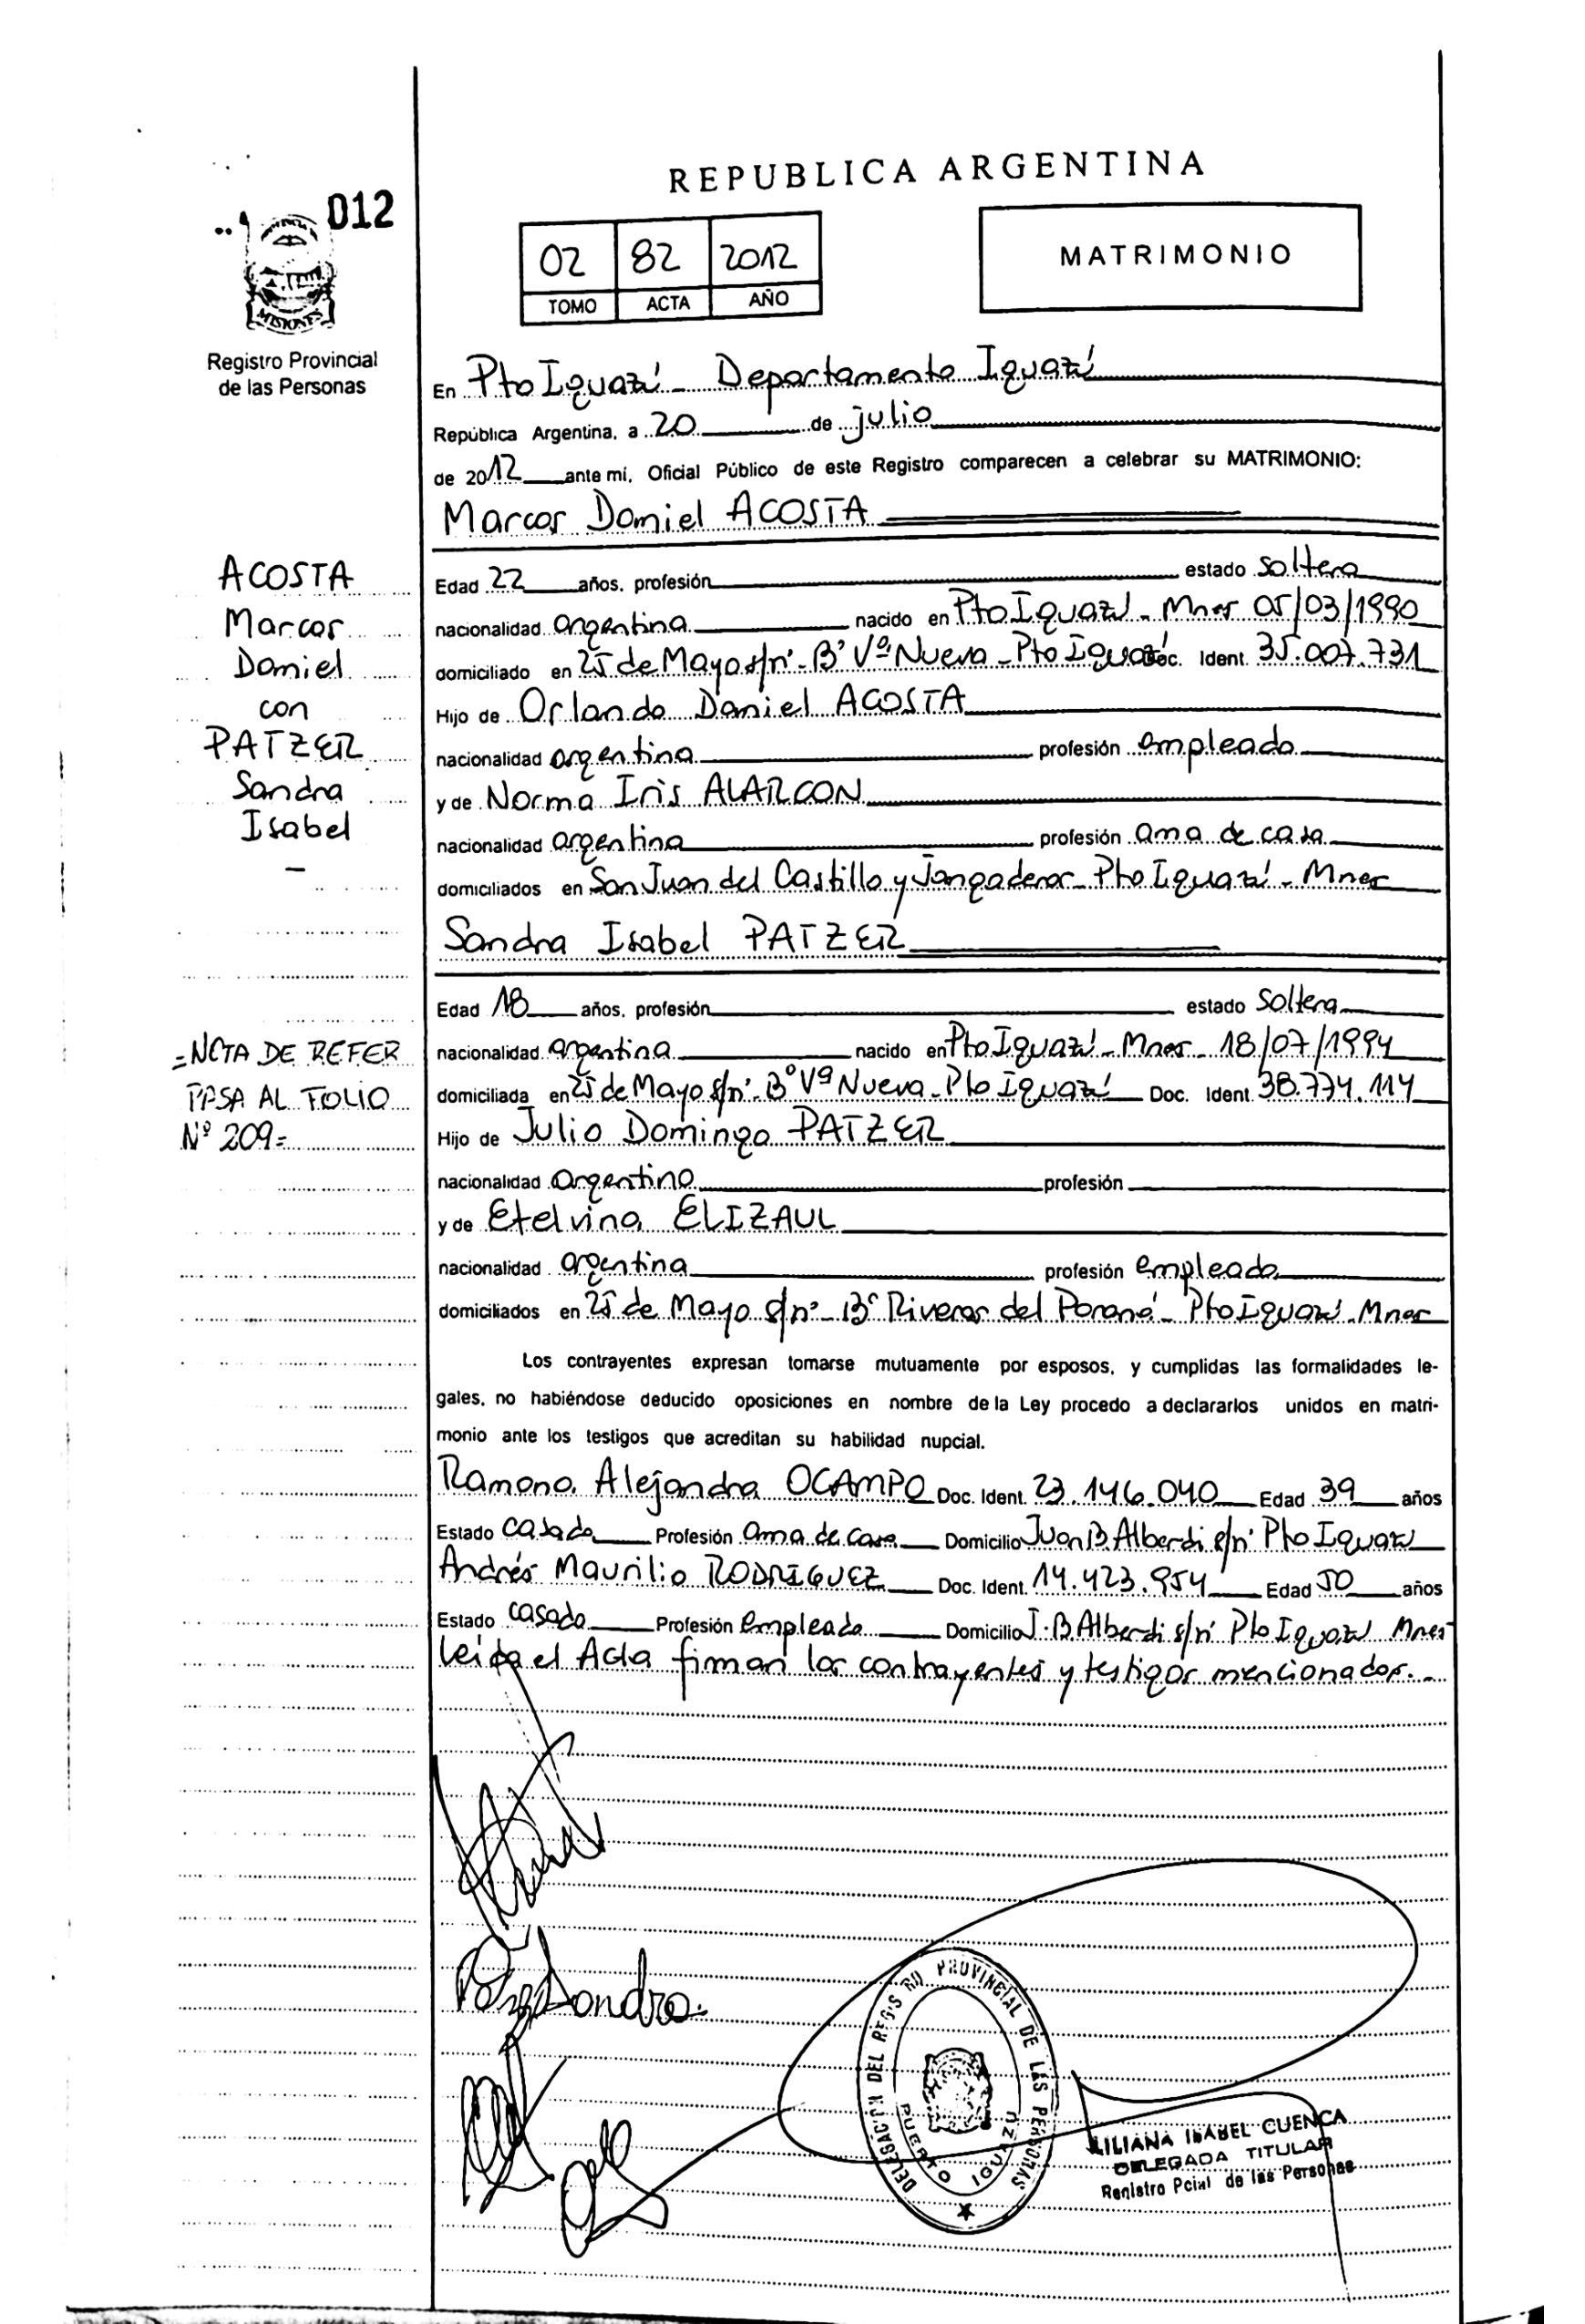 REPUBLICA ARGENTINA
012
02 82 2012
TOMO ACTA AÑO
MATRIMONIO
MISIONES
Registro Provincial
de las Personas
En Pto Iguazú - Departamento Iguazú
República Argentina, a 20 de julio
de 2012 ante mi, Oficial Público de este Registro comparecen a celebrar su MATRIMONIO:
Marcos Daniel ACOSTA
ACOSTA
Marcos
Daniel
con
PATZER
Sandra
Isabel
—
Edad 22 años, profesión estado soltero
nacionalidad argentina nacido en Pto Iguazú - Mnes 05/03/1990
domiciliado en 25 de Mayo s/nº - Bº Vª Nueva - Pto Iguazú Doc. Ident. 35.007.731
Hijo de Orlando Daniel ACOSTA
nacionalidad argentina profesión empleado
y de Norma Iris ALARCON
nacionalidad argentina profesión ama de casa
domiciliados en San Juan del Castillo y Jangaderos - Pto Iguazú - Mnes
Sandra Isabel PATZER
Edad 18 años, profesión estado soltera
nacionalidad argentina nacido en Pto Iguazú - Mnes 18/07/1994
domiciliada en 25 de Mayo s/nº - Bº Vª Nueva - Pto Iguazú Doc. Ident. 38.774.114
Hijo de Julio Domingo PATZER
nacionalidad argentino profesión
y de Etelvina ELIZAUL
nacionalidad argentina profesión empleada
domiciliados en 25 de Mayo s/nº - Bº Riveras del Paraná - Pto Iguazú - Mnes
=NOTA DE REFER
PASA AL FOLIO
Nº 209=
Los contrayentes expresan tomarse mutuamente por esposos, y cumplidas las formalidades le-
gales, no habiéndose deducido oposiciones en nombre de la Ley procedo a declararlos unidos en matri-
monio ante los testigos que acreditan su habilidad nupcial.
Ramona Alejandra OCAMPO Doc. Ident. 23.146.040 Edad 39 años
Estado casada Profesión ama de casa Domicilio Juan B. Alberdi s/nº Pto Iguazú
Andrés Maurilio RODRIGUEZ Doc. Ident. 14.423.954 Edad 50 años
Estado casado Profesión empleado Domicilio J. B. Alberdi s/nº Pto Iguazú Mnes
Leída el Acta firman los contrayentes y testigos mencionados.-
Sandra
DELEGACION DEL REGISTRO PROVINCIAL DE LAS PERSONAS
PUERTO IGUAZU
LILIANA ISABEL CUENCA
DELEGADA TITULAR
Registro Pcial de las Personas